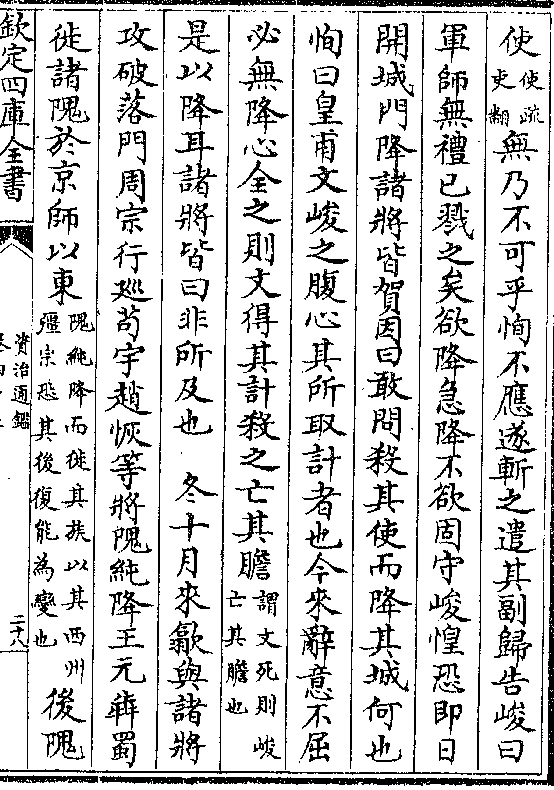 使使疏吏翻無乃不可乎恂不應遂斬之遣其副歸告峻曰
軍師無禮已戮之矣欲降急降不欲固守峻惶恐即日
開城門降諸將皆賀因曰敢問殺其使而降其城何也
恂曰皇甫文峻之腹心其所取計者也今來辭意不屈
必無降心全之則文得其計殺之亡其膽謂文死則峻亡其膽也
是以降耳諸將皆曰非所及也 冬十月來歙與諸將
攻破落門周宗行廵苟宇趙恢等將隗純降王元奔蜀
徙諸隗於京師以東隗純降而徙其族以其西州彊宗恐其後復能為變也後隗
欽定四庫全書
資治通鑑
二十八